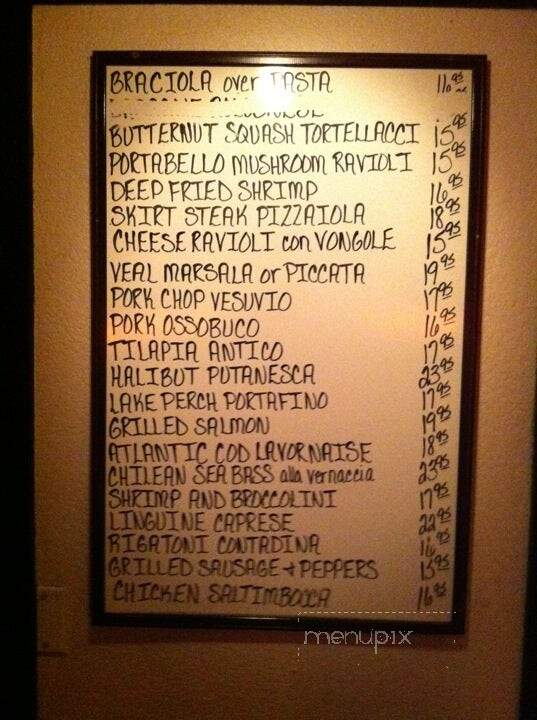 BRACIOLA over PASTA 16.95
BUTTERNUT SQUASH TORTELLACCI 15.95
PORTABELLO MUSHROOM RAVIOLI 15.95
DEEP FRIED SHRIMP 16.95
SKIRT STEAK PIZZAIOLA 18.95
CHEESE RAVIOLI con VONGOLE 15.95
VEAL MARSALA or PICCATA 19.95
PORK CHOP VESUVIO 17.95
PORK OSSOBUCO 16.95
TILAPIA ANTICO 17.95
HALIBUT PUTANESCA 23.95
LAKE PERCH PORTAFINO 17.95
GRILLED SALMON 19.95
ATLANTIC COD LAVORNAISE 18.95
CHILEAN SEA BASS alla vernaccia 23.95
SHRIMP AND BROCCOLINI 17.95
LINGUINE CAPRESE 22.95
RIGATONI CONTADINA 16.95
GRILLED SAUSAGE + PEPPERS 15.95
CHICKEN SALTIMBOCCA 16.95
menupix